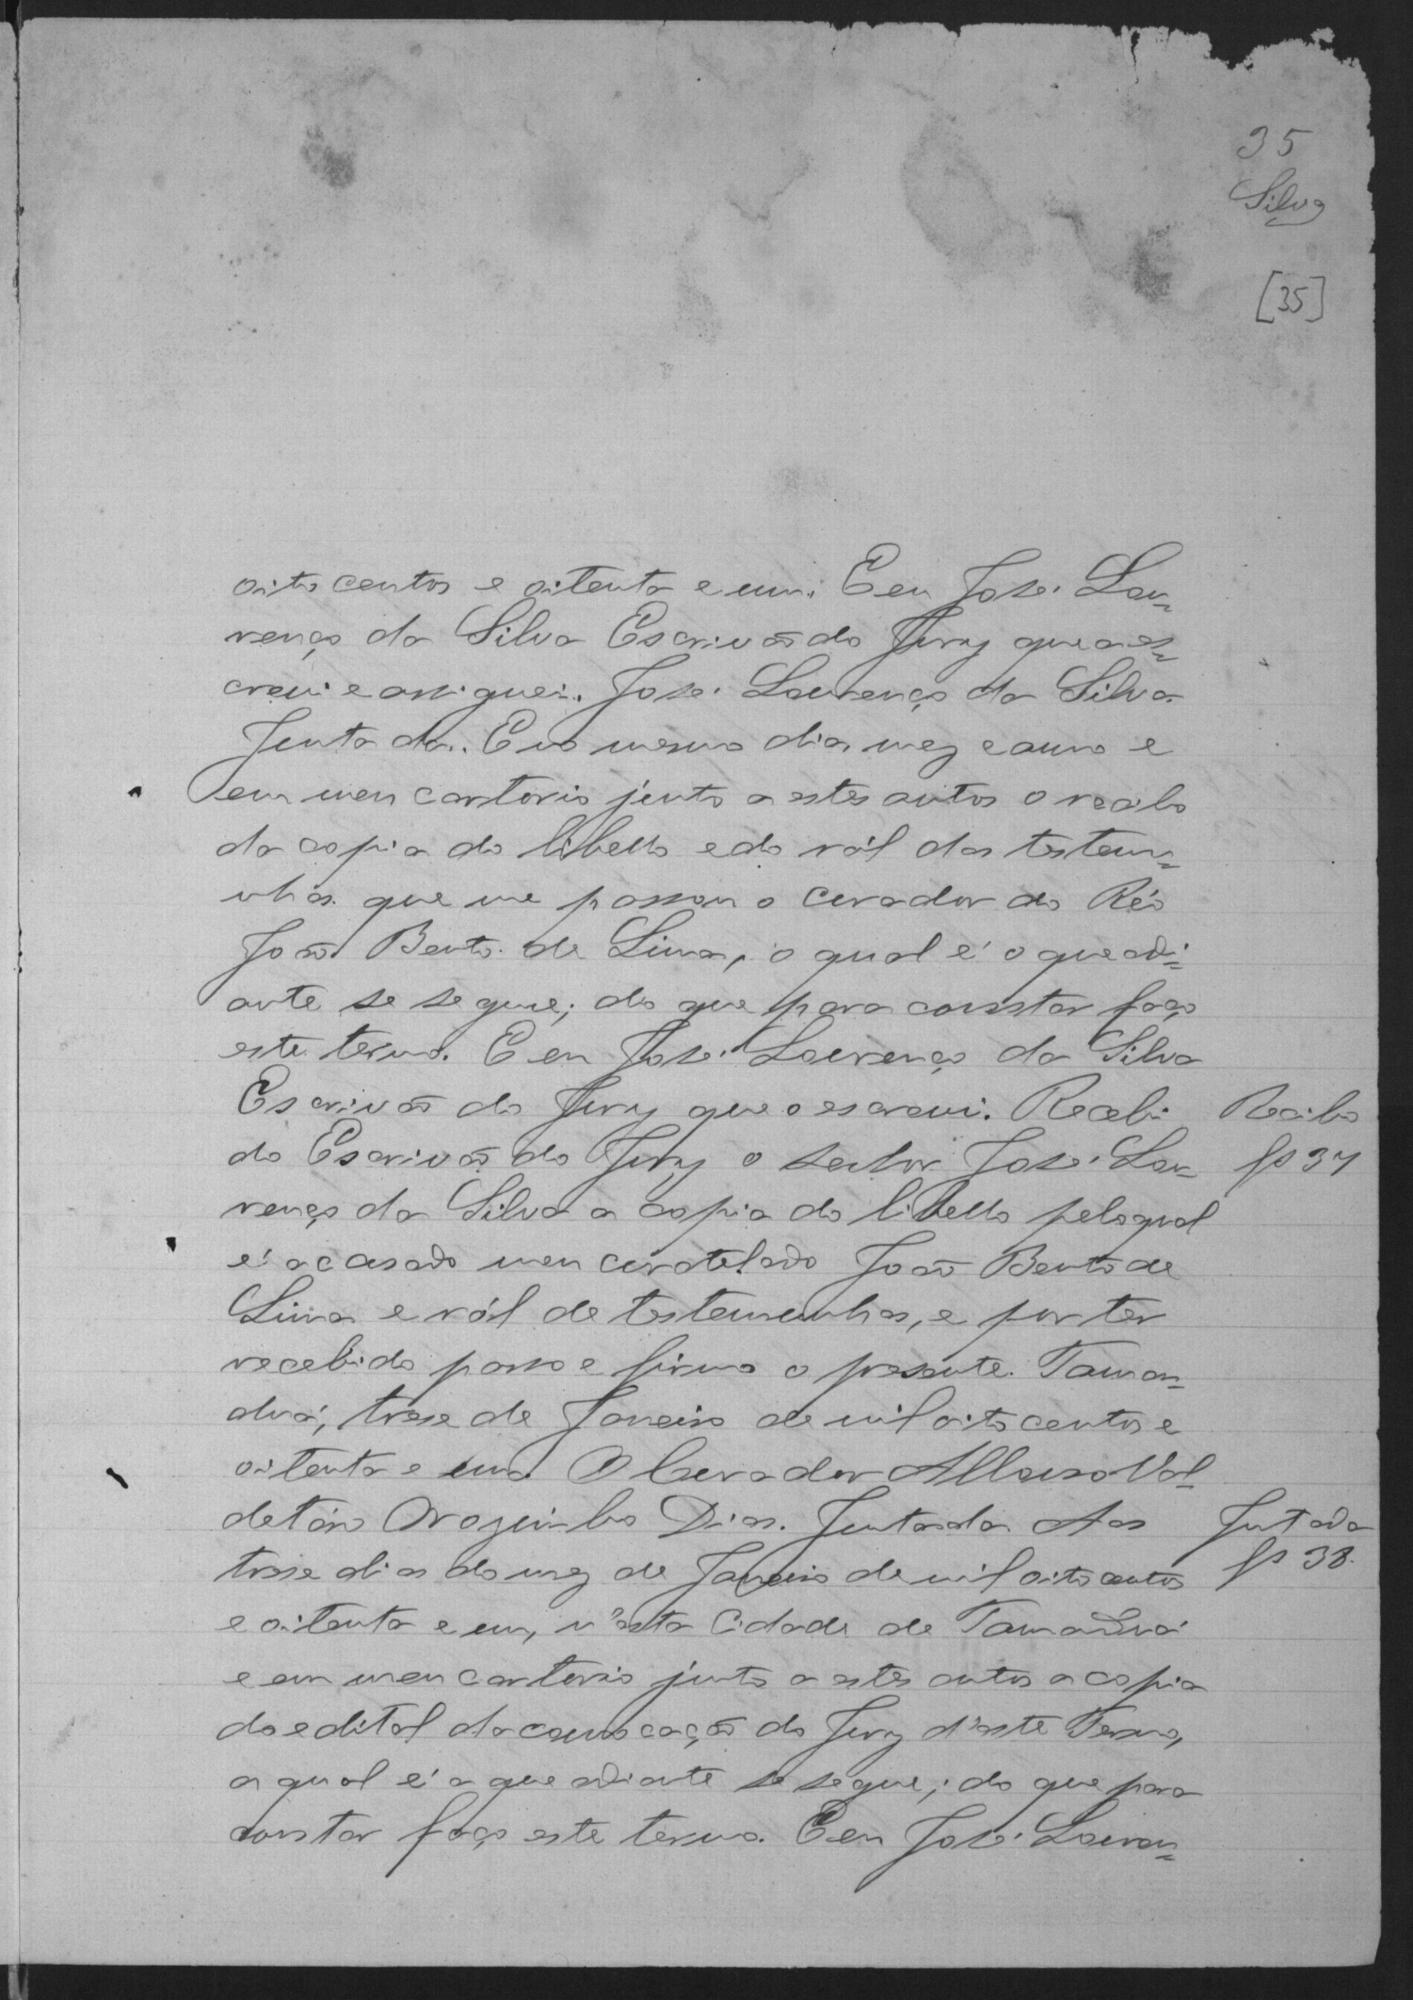 35
Silva
[35]
oito centos e oitenta e um. E eu José Lou=
renço da Silva Escrivão do Jury que a es=
crevi e assignei. José Lourenço da Silva.
Juntada. E no mesmo dia, mez e anno e
em meu cartorio junto a estes autos o recibo
da copia do libello e do ról das testemu=
nhas que me passou o curador do Réo
João Bento de Lima, o qual é o que adi=
ante se segue; do que para constar faço
este termo. E eu José Lourenço da Silva
Escrivão do Jury que o escrevi. Recebi
Recibo
do Escrivão do Jury o senhor José Lou=
fs 37
renço da Silva a copia do libello pelo qual
é accusado meu curatelado João Bento de
Lima e ról de testemunhas, e por ter
recebido passo e firmo o presente. Taman=
duá, trese de Janeiro de mil oito centos e
oitenta e um. O Curador Affonso Val=
detáro Orozimbo Dias. Juntada Aos
Juntada
trese dias do mez de Janeiro de mil oito centos
fs 38.
e oitenta e um, n'esta Cidade de Tamanduá
e em meu cartorio junto a estes autos a copia
do edital da convocação do Jury d'este Termo,
a qual é a que adiante se segue; do que para
constar faço este termo. E eu José Louren=